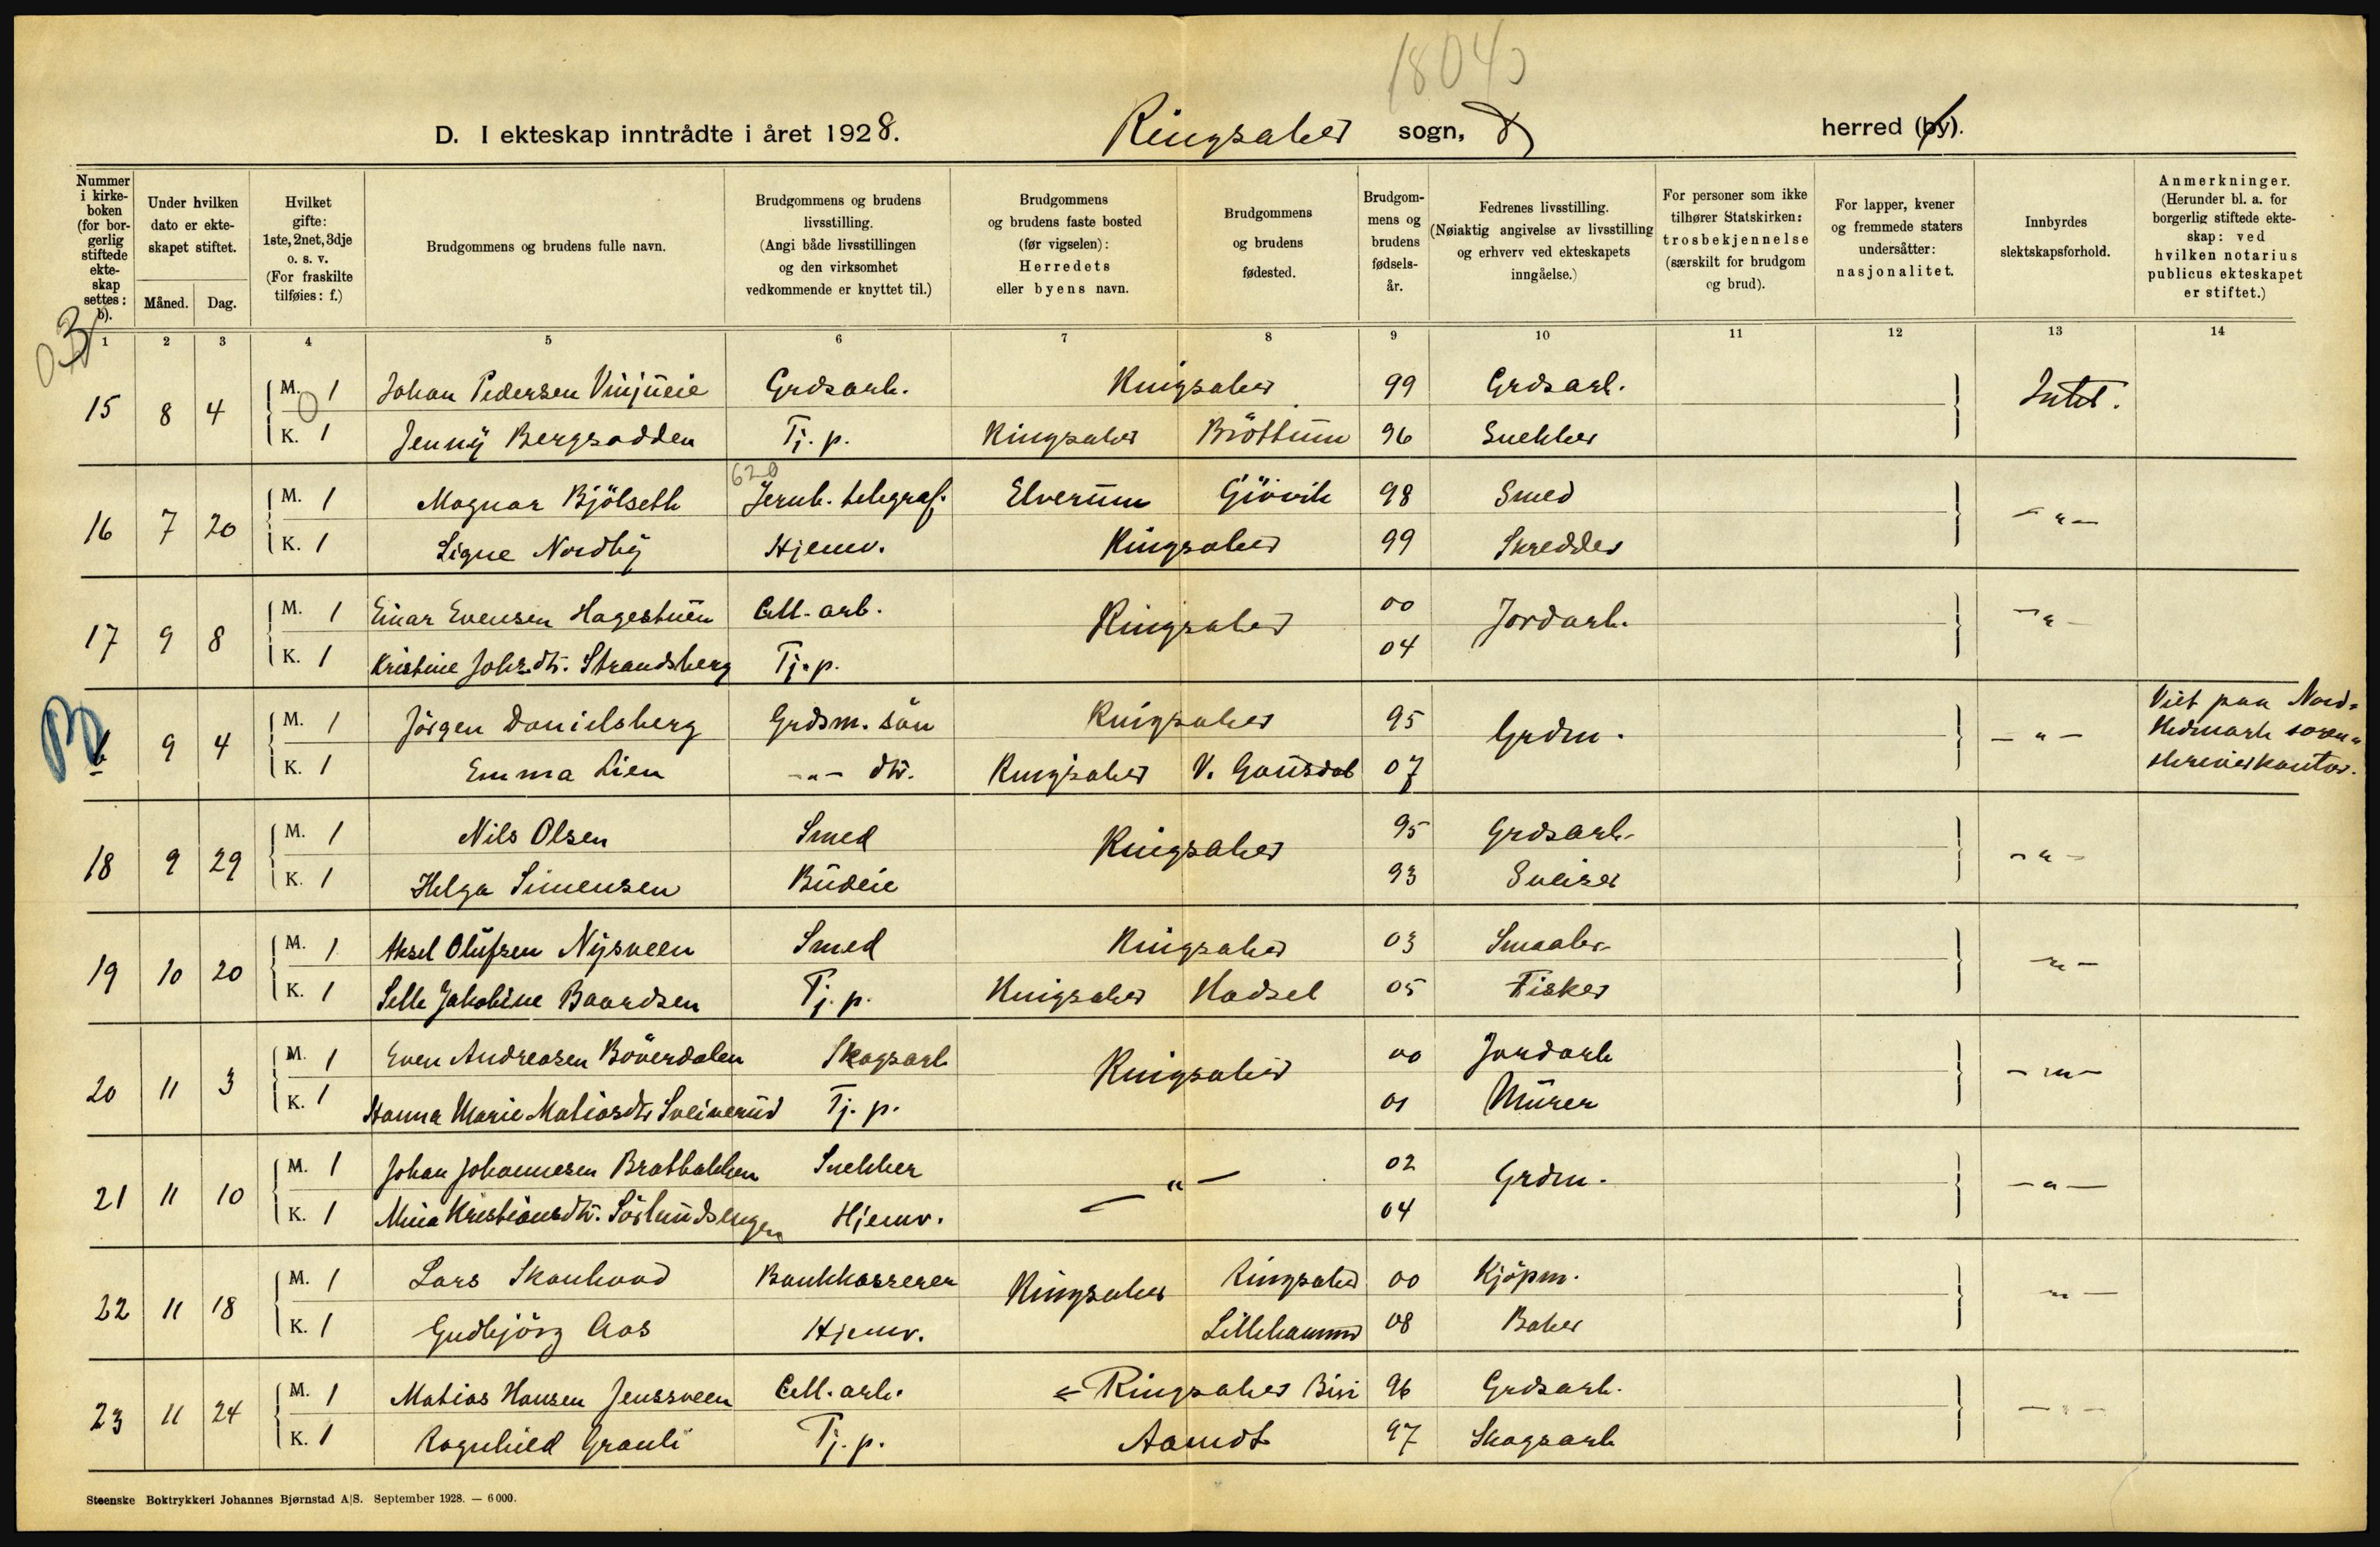 1804
D. I ekteskap inntrådte i året 1928. Ringsaker sogn, herred (by).
Nummer i kirke-boken (for bor-gerlig stiftede ekte-skap settes: b).
Under hvilken dato er ekte-skapet stiftet.
Måned. Dag.
Hvilket gifte: 1ste, 2net, 3dje o. s. v. (For fraskilte tilføies: f.)
Brudgommens og brudens fulle navn.
Brudgommens og brudens livsstilling. (Angi både livsstillingen og den virksomhet vedkommende er knyttet til.)
Brudgommens og brudens faste bosted (før vigselen): Herredets eller byens navn.
Brudgommens og brudens fødested.
Brudgom-mens og brudens fødsels-år.
Fedrenes livsstilling. (Nøiaktig angivelse av livsstilling og erhverv ved ekteskapets inngåelse.)
For personer som ikke tilhører Statskirken: trosbekjennelse (særskilt for brudgom og brud).
For lapper, kvener og fremmede staters undersåtter: nasjonalitet.
Innbyrdes slektskapsforhold.
Anmerkninger. (Herunder bl. a. for borgerlig stiftede ekte-skap: ved hvilken notarius publicus ekteskapet er stiftet.)
03
1 2 3 4 5 6 7 8 9 10 11 12 13 14
15 8 4 M. 1 Johan Pedersen Vinjueie Grdsarb. Ringsaker 99 Grdsarb. Intet.
K. 1 Jenny Bergsodden Tj. p. Ringsaker Bröttum 96 Snekker
620
16 7 20 M. 1 Magnar Bjölseth Jernb. telegraf. Elverum Gjövik 98 Smed —"—
K. 1 Signe Nordby Hjemv. Ringsaker 99 Skredder
17 9 8 M. 1 Einar Evensen Hagestuen Cell. arb. Ringsaker 00 Jordarb. —"—
K. 1 Kristine Johsdtr. Strandsberg Tj. p. 04
b 9 4 M. 1 Jörgen Danielsberg Grdsm. sön Ringsaker 95 Grdm. —"— Viet paa Nord-
K. 1 Emma Lien —"— dtr. Ringsaker V. Gausdal 07 Hedmark soren-
skriverkontor.
18 9 29 M. 1 Nils Olsen Smed Ringsaker 95 Grdsarb. —"—
K. 1 Helga Simensen Budeie 93 Sveiser
19 10 20 M. 1 Aksel Olufsen Nysveen Smed Ringsaker 03 Smaabr. —"—
K. 1 Jakobine Baardsen Tj. p. Ringsaker Hadsel 05 Fisker
20 11 3 M. 1 Even Andreasen Böverdalen Skogsarb Ringsaker 00 Jordarb —"—
K. 1 Hanna Marie Matiasdtr Sveinerud Tj. p. 01 Murer
21 11 10 M. 1 Johan Johannesen Bratbakken Snekker —"— 02 Grdm. —"—
K. 1 Mina Kristiansdtr. Sörlundsengen Hjemv. 04
22 11 18 M. 1 Lars Skonhovd Bankkasserer Ringsaker Ringsaker 00 Kjöpm. —"—
K. 1 Gudbjörg Aas Hjemv. Lillehammer 08 Baker
23 11 24 M. 1 Matias Hansen Jenssveen Cell. arb. Ringsaker Biri 96 Grdsarb. —"—
K. 1 Ragnhild Granli Tj. p. Aamot 97 Skogsarb
Steenske Boktrykkeri Johannes Bjørnstad A|S. September 1928. — 6000.